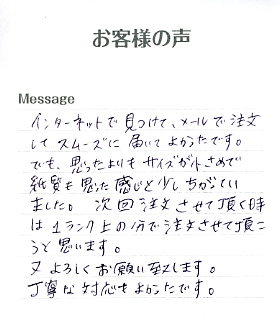 お客様の声
Message
インターネットで見つけて、メールで注文
して スムーズに 届いて よかったです。
でも、思ったよりも サイズが小さめで
紙質も 思った感じと少しちがってい
ました。 次回注文させて頂く時
は 1ランク上の分で注文させて頂こ
うと思います。
又 よろしくお願い致します。
丁寧な対応もよかったです。